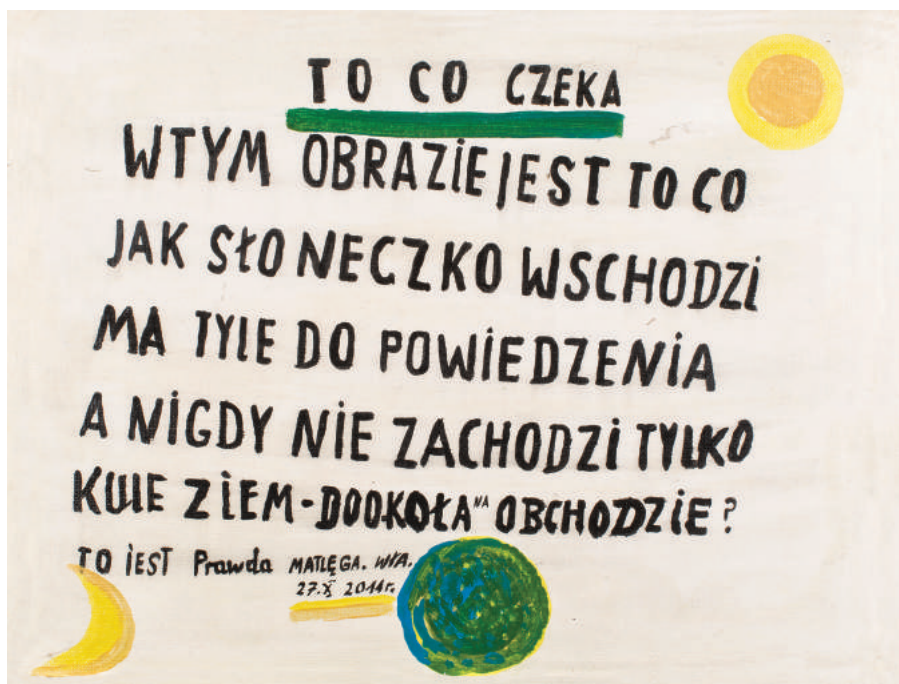 TO CO CZEKA
WTYM OBRAZiE JEST TO CO
JAK SŁONECZKO WSCHODZi
MA TYlE DO POWiEDZENiA
A NiGDY NiE ZACHODZi TYLKO
KUlE ZiEM-DOOKOŁA NA OBCHODZiE?
TO iEST Prawda MATLĘGA. WŁA.
27.X 2014r.